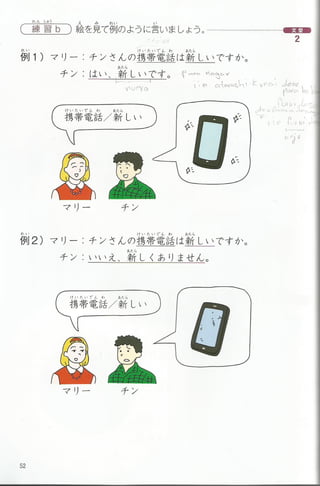 練習b 絵を見て例のように言いましょう。
文型
2
例1) マリー：チンさんの携帯電話は新しいですか。
チン：はい、新しいです。
para negar
携帯電話／新しい
マリー チン
例2) マリー：チンさんの携帯電話は新しいですか。
チン：いいえ、新しくありません。
携帯電話／新しい
マリー チン
52